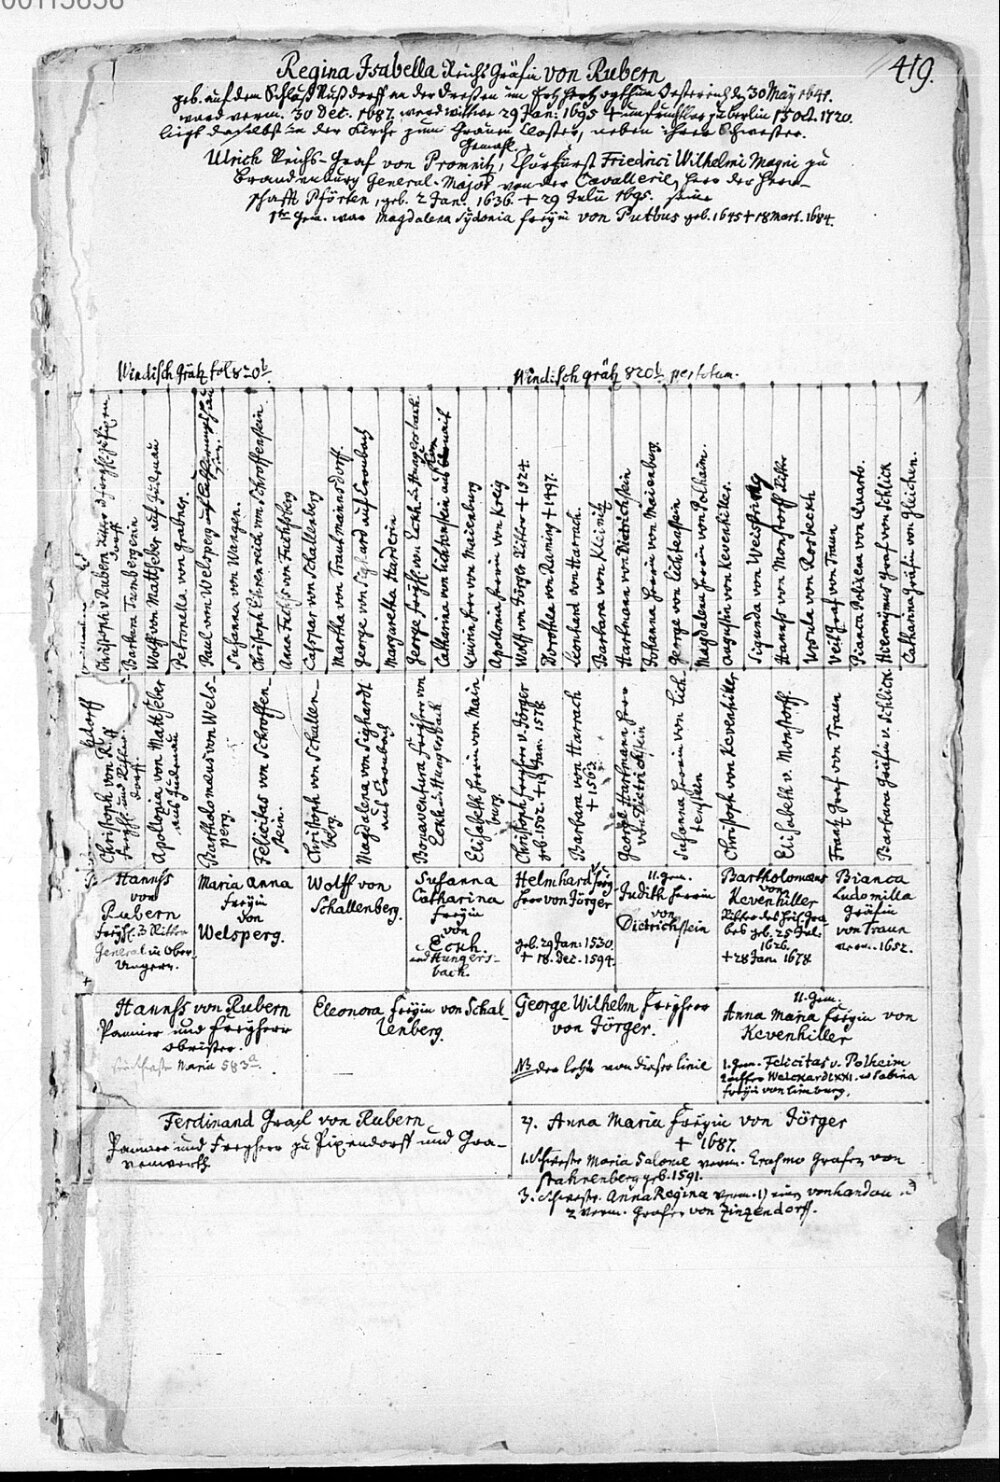 419.
Regina Isabella Reichs Gräfin von Rubern
geb. auf dem Schloß Nußdorff an der Dreisen im Ertz Hertzogthum Oesterreich d. 30 May 1641.
ward verm. 30 Dec. 1687. ward wittwe 29 Jan. 1695 zu Berlin 15 Oct. 1720.
liegt daselbst in der Kirche zum Grauen Closter, neben ihrer Schwester.
Gemahl.
Ulrich Reichs-Graf von Promnitz, Churfürst Friedrici Wilhelmi Magni zu
Brandenburg General-Major von der Cavallerie, Herr der Herr-
schafft Pförten, geb. 2 Jan. 1636. + 29 Julii 1695. seine
1te Gem. war Magdalena Sydonia Freyin von Putbus geb. 1645 + 18 Mart. 1684.
Windisch Grätz fol 820b.
Windisch grätz 820b. per totum.
Christoph v Rubern Ritter
Barbara Trenbergerin
Wolff von Mattseber auf Judenau
Petronella von Grabner.
Paul von Welsperg
Susanna von Wangen.
Christoph Ehrenreich von Schroffenstein
Anna Fuchs von Fuchsberg
Caspar von Schallenberg
Martha von Traulmannsdorf.
George von Sighard auf Leonbach
Margaretha Harderin
George Freyhr. von Eckh u. Hungersbach
Catharina von Lichtenstein aus
Quirin Herr von Maienburg
Apollonia Herrin von Kreig
Wolff von Jörger Ritter + 1524.
Dorothea von Raming + 1497.
Leonhard von Harrach.
Barbara von Kleinitz
Hartmann von Dietrichstein
Johanna Herrin von Meienburg.
George von Lichtenstein
Magdalena Herrin von Polhaim.
Augustin von Kevenhiller.
Sigunda von Weispriag
Hannß von Monstorff Ritter
Ursula von Rorbeckh
Veit Graf von Traun
Bianca Polixena von Collarb.
Hieronymus Graf von Schlick
Catharina Gräfin von Gleichen.
Christoph von R
Freyh. und Ritter
dorff
Apollonia von Mattseber
aus Judenau
Bartholomaeus von Wels-
perg.
Felicitas von Schroffen-
stein.
Christoph von Schallen-
berg.
Magdalena von Sighardt
aus Leonbach
Bonaventura Freyherr von
Eckh u. Hungersbach
Elisabeth Herrin von Maien-
burg.
Christoph Freyherr v. Jörger
geb. 1502. + 19 Jan. 1578.
Barbara von Harrach
+ 1562
George Hartmann Herr
von Dietrichstein
Susanna Herrin von Lich-
tenstein
Christoph von Kevenhiller
Elisabeth v. Monstorff.
Frantz Graf von Traun
Barbara Gräfin v. Schlick
Hannß
von
Rubern
Freyh. Ritter
General in Ober
Ungern.
Maria Anna
Freyin
von
Welsperg.
Wolff von
Schallenberg.
Susanna
Catharina
Freyin
von
Eckh.
und Hungers-
bach.
Helmhard
Herr von Jörger
geb. 29 Jan: 1530.
+ 18. Dec. 1594.
II. Gem.
Judith Herrin
von
Dietrichstein
Bartholomaeus
von
Kevenhiller
+ 28 Jan. 1678
Bianca
Ludomilla
Gräfin
von Traun
verm. 1652.
Hannß von Rubern
Pannier und Freyherr
Obrister.
Maria 583a.
Eleonora Freyin von Schal-
lenberg.
George Wilhelm Freyherr
von Jörger.
NB der letzte von dieser linie
II. Gem.
Anna Maria Freyin von
Kevenhiller
1. Gem. Felicitas v. Polheim
Freyin von Limburg.
Ferdinand Graf von Rubern
Pannier und Freyherr zu Pixendorff und Gra-
venwerth
2. Anna Maria Freyin von Jörger
+ 1687.
1. Schwester Maria Salome verm. Erasmo Grafen von
Stahrenberg geb. 1591.
3. Schwester. Anna Regina verm. 1)
2 verm. Grafen von Zinzendorff.